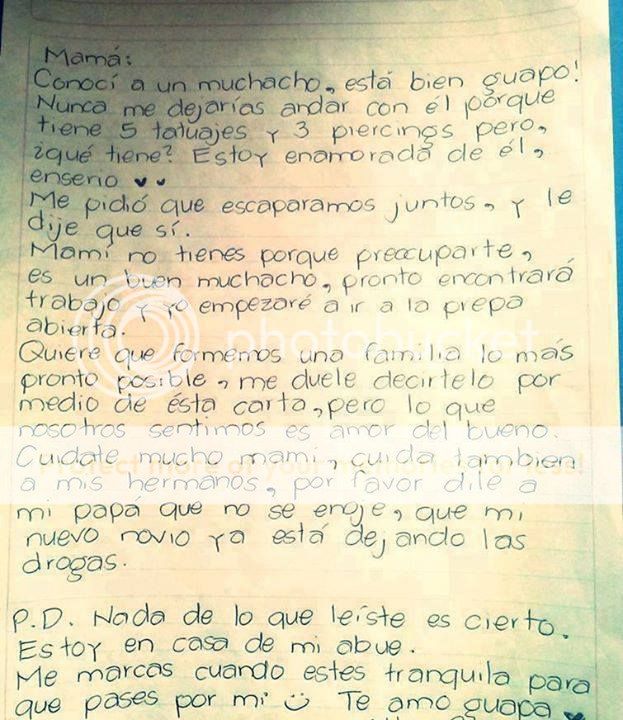 Mamá:
Conocí a un muchacho, está bien guapo!
Nunca me dejarías andar con él porque
tiene 5 tatuajes y 3 piercings pero,
¿qué tiene? Estoy enamorada de él,
enserio ♥♥
Me pidió que escaparamos juntos, y le
dije que sí.
Mamí no tienes porque preocuparte,
es un buen muchacho, pronto encontrará
trabajo y yo empezaré a ir a la prepa
abierta.
photobucket
Quiere que formemos una familia lo más
pronto posible, me duele decirtelo por
medio de ésta carta, pero lo que
nosotros sentimos es amor del bueno.
Cuidate mucho mami, cuida tambien
Protect more of your memories for less!
a mis hermanos, por favor dile a
mi papá que no se enoje, que mi
nuevo novio ya está dejando las
drogas.
P.D. Nada de lo que leíste es cierto.
Estoy en casa de mi abue.
Me marcas cuando estes tranquila para
que pases por mi ☺ Te amo guapa ♥